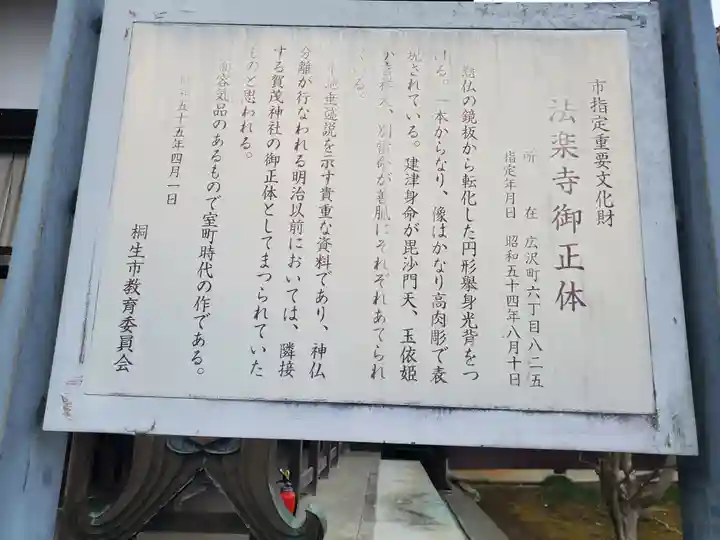 市指定重要文化財
法楽寺御正体
所在 広沢町六丁目八二五
指定年月日 昭和五十四年八月十日
仏の鏡板から転化した円形挙身光背をつ
ける。一本からなり、像はかなり高肉彫で表
現されている。建津身命が毘沙門天、玉依姫
別雷命が にそれぞれあてられ
る。
垂迹説を示す貴重な資料であり、神仏
分離が行なわれる明治以前においては、隣接
する賀茂神社の御正体としてまつられていた
ものと思われる。
容気品のあるもので室町時代の作である。
五十五年四月一日
桐生市教育委員会